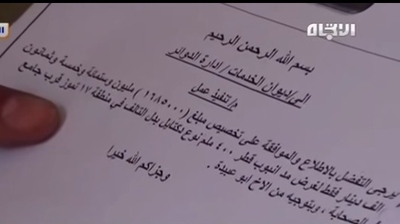 الاتجاه
بسم الله الرحمن الرحيم
الى/ديوان الخدمات / ادارة الدوائر
م/تنفيذ عمل
يرجى التفضل بالاطلاع والموافقة على تخصيص مبلغ (١٦٨٥٠٠٠) مليون وستمائة وخمسة وثمانون
الف دينار فقط لغرض مد انبوب قطر ٤٠٠ ملم نوع بكتايل بدل التالف في منطقة ١٧ تموز قرب جامع
الصحابة ، وبتوجيه من الاخ ابو عبيدة .
وجزاكم الله خيرا